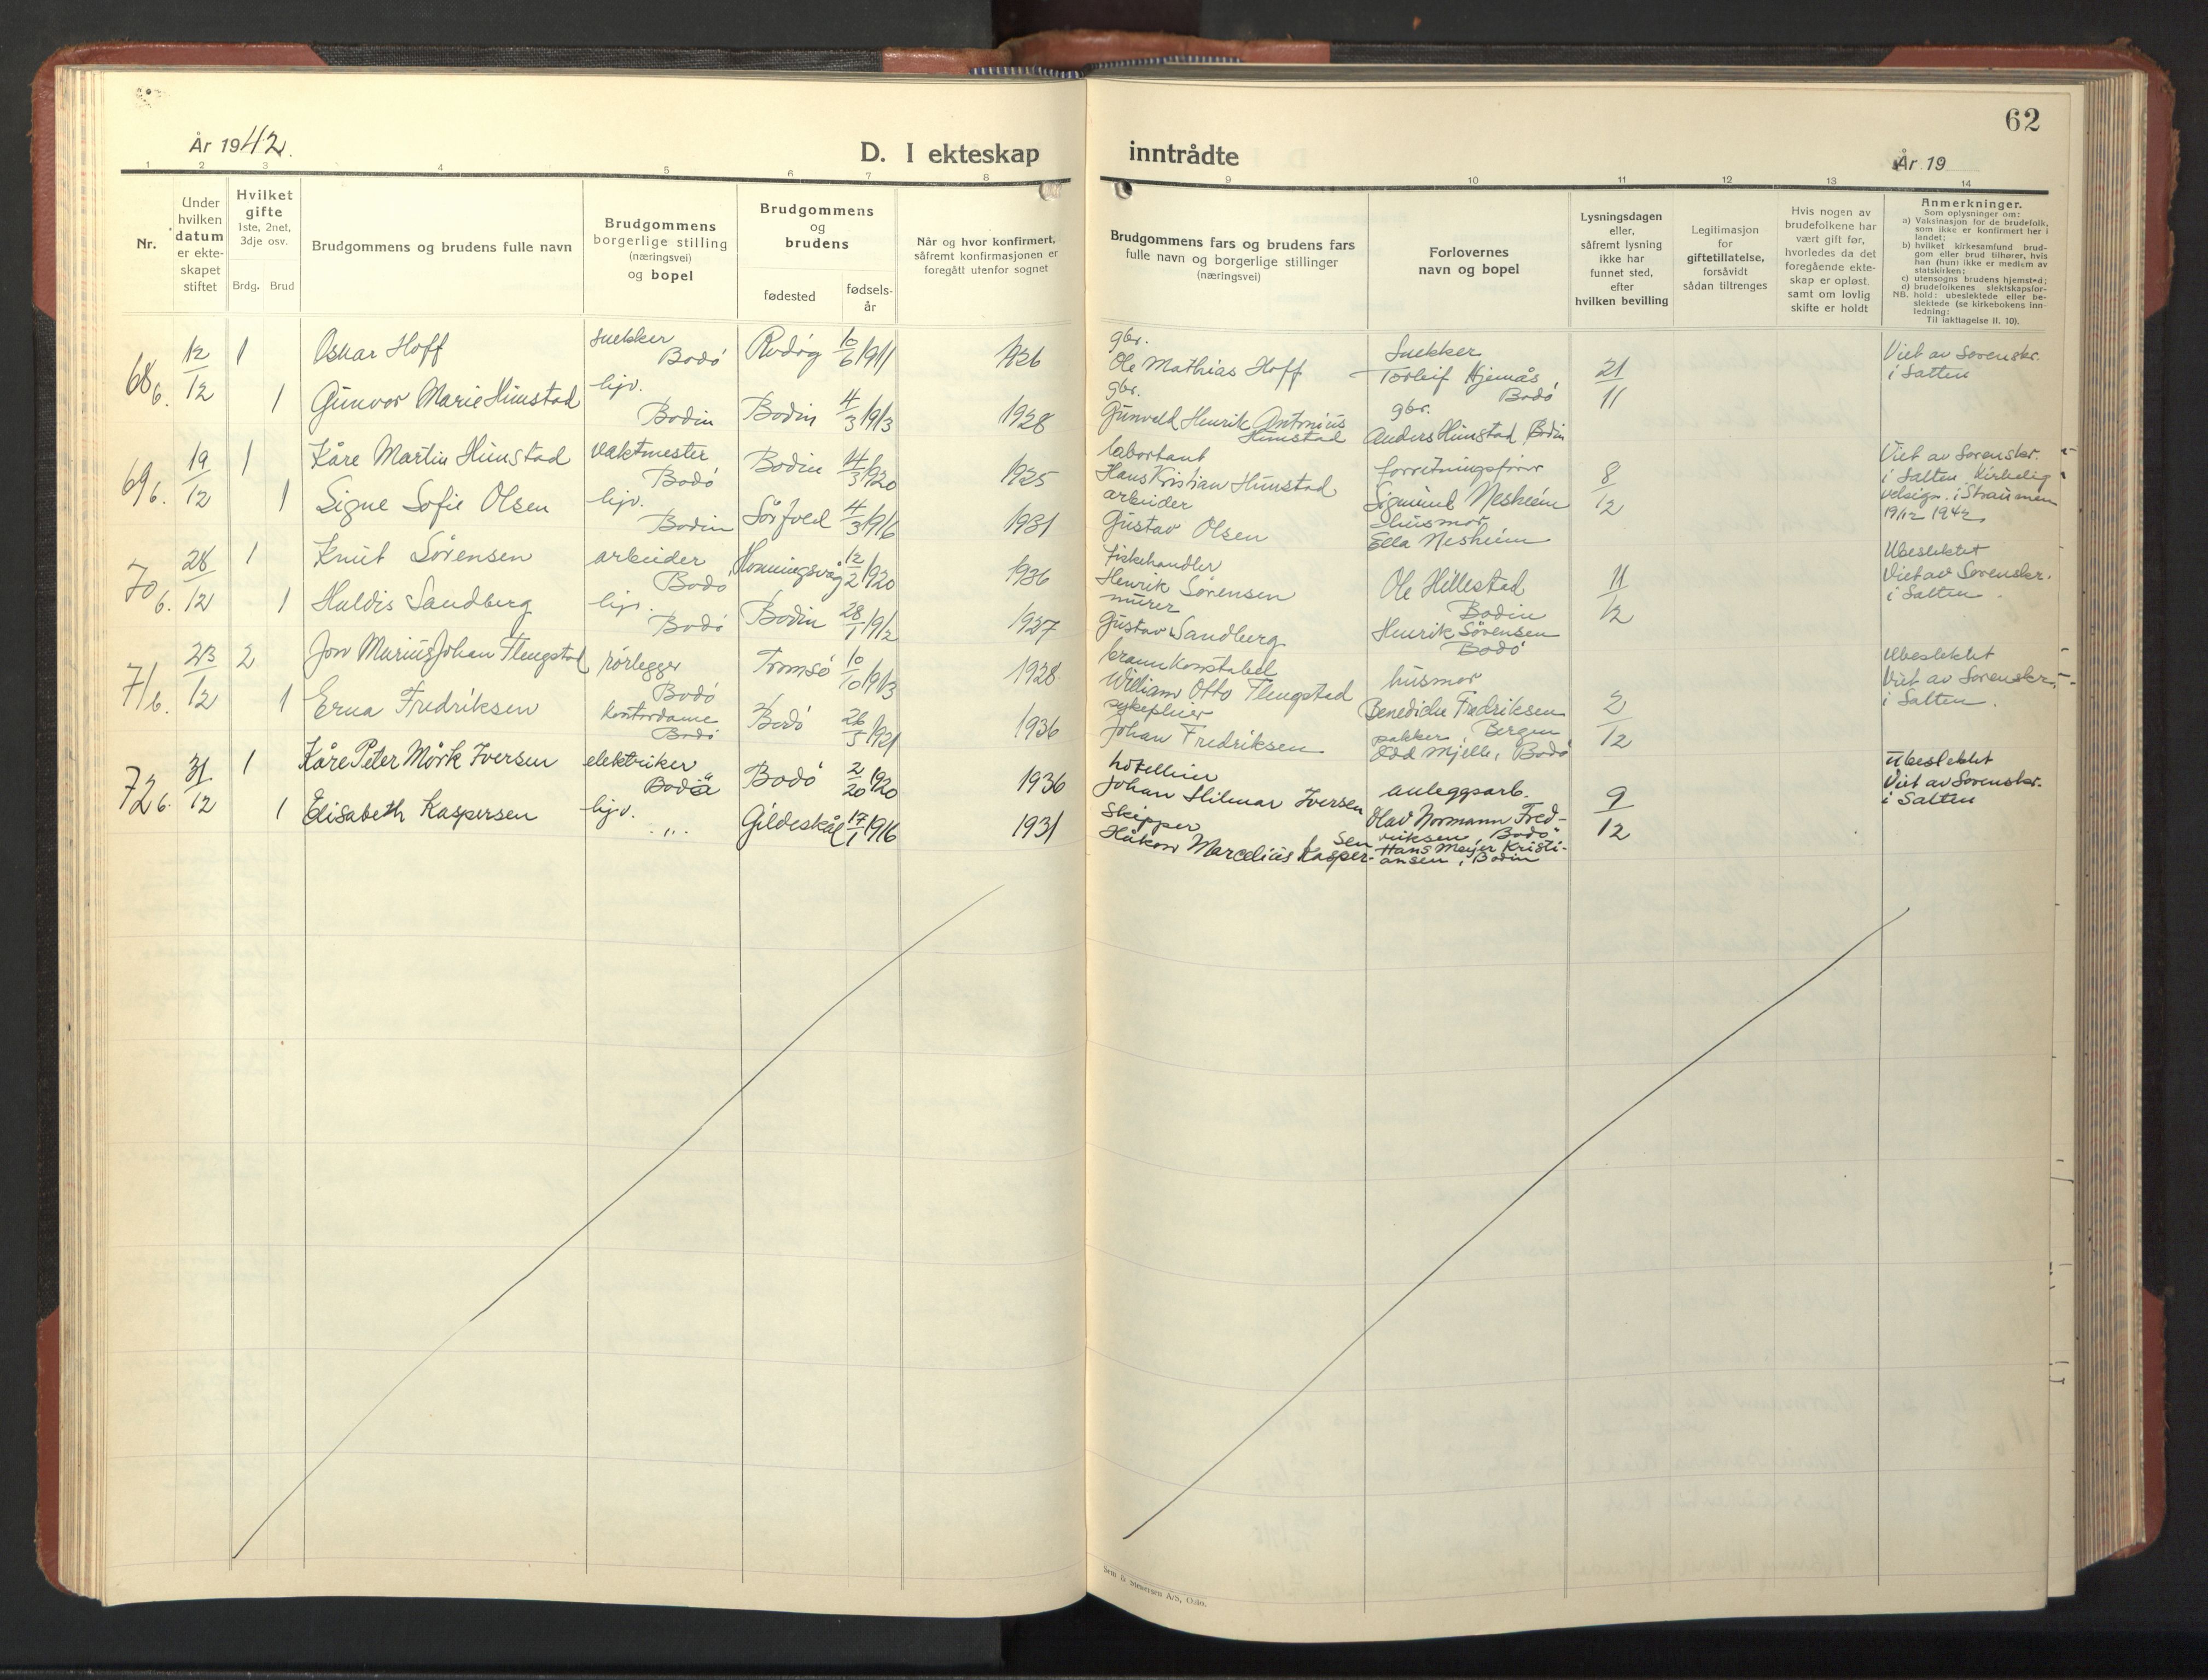 62
År 1942.
D. I ekteskap inntrådte
År 19
1 2 3 4 5 6 7 8 9 10 11 12 13 14
Nr.
Under
hvilken
datum
er ekte-
skapet
stiftet
Hvilket
gifte
1ste, 2net,
3dje osv.
Brdg. Brud
Brudgommens og brudens fulle navn
Brudgommens
borgerlige stilling
(næringsvei)
og bopel
Brudgommens
og
brudens
fødested
fødsels-
år
Når og hvor konfirmert,
såfremt konfirmasjonen er
foregått utenfor sognet
Brudgommens fars og brudens fars
fulle navn og borgerlige stillinger
(næringsvei)
Forlovernes
navn og bopel
Lysningsdagen
eller,
såfremt lysning
ikke har
funnet sted,
efter
hvilken bevilling
Legitimasjon
for
giftetillatelse,
forsåvidt
sådan tiltrenges
Hvis nogen av
brudefolkene har
vært gift før,
hvorledes da det
foregående ekte-
skap er opløst,
samt om lovlig
skifte er holdt
Anmerkninger.
Som oplysninger om:
a) Vaksinasjon for de brudefolk,
som ikke er konfirmert her i
landet;
b) hvilket kirkesamfund brud-
gom eller brud tilhører, hvis
han (hun) ikke er medlem av
statskirken;
c) utensogns brudens hjemsted;
d) brudefolkenes slektskapsfor-
NB. hold: ubeslektede eller be-
slektede (se kirkebokens inn-
ledning:
Til iakttagelse II. 10).
68 b. 12/12 1 Oskar Hoff
snekker
Bodø
Rødøy 10/6 1911
1926
gbr.
Ole Mathias Hoff
Snekker
Torleif Hjemås,
Bodø
21/11
Viet av Sorenskr.
i Salten
1 Gunvor Marie Hunstad
hjv.
Bodin
Bodin 4/3 1913
1928
gbr.
Gunvald Henrik Antonius
Hunstad
gbr.
Anders Hunstad Bodin
69 b. 19/12 1 Kåre Martin Hunstad
vaktmester
Bodø
Bodin 14/3 1920
1925
laborant
Hans Kristian Hunstad
forretningsfører
Sigmund Nesheim
8/12
Viet av Sorenskr.
i Salten. Kirkelig
velsign. i Straumen
19/12 1942
1 Signe Sofie Olsen
hjv.
Bodin
Sørfold 4/3 1916
1931
arbeider
Gustav Olsen
husmor
Ella Nesheim
70 b. 28/12 1 Knut Sørensen
arbeider
Bodø
Honningsvåg 12/2 1920
1936
Fiskehandler
Henrik Sørensen
Ole Hillestad
Bodin
11/12
Ubeslektet
Viet av Sorenskr.
i Salten.
1 Huldis Sandberg
hjv.
Bodø
Bodin 28/1 1912
1927
murer
Gustav Sandberg
Henrik Sørensen
Bodø
71 b. 23/12 2 Jon Marius Johan Flengstad
rørlegger
Bodø
Tromsø 10/10 1913
1928
brannkonstabel
William Otto Flengstad
husmor
Benedicte Fredriksen
Bergen
2/12
Ubeslektet
Viet av Sorenskr.
i Salten.
1 Erna Fredriksen
kontordame
Bodø
Bodø 26/5 1921
1936
sykepleier
Johan Fredriksen
pakker
Odd Mjelle, Bodø
72 b. 31/12 1 Kåre Peter Mørk Iversen
elektriker
Bodø
Bodø 2/20 1920
1936
hotelleier
Johan Hilmar Iversen
anleggsarb.
Olav Normann Fred-
riksen, Bodø
9/12
Ubeslektet
Viet av Sorenskr.
i Salten
1 Elisabeth Kaspersen
hjv.
. " .
Gildeskål 17/1 1916
1931
Skipper
Håkon Marcelius Kasper-
sen
Hans Meyer Kristi-
ansen, Bodin
Sem & Stenersen A/S, Oslo.